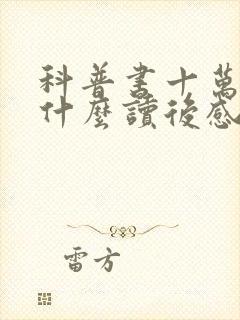 科普書十萬
什麼讀後感
雷方